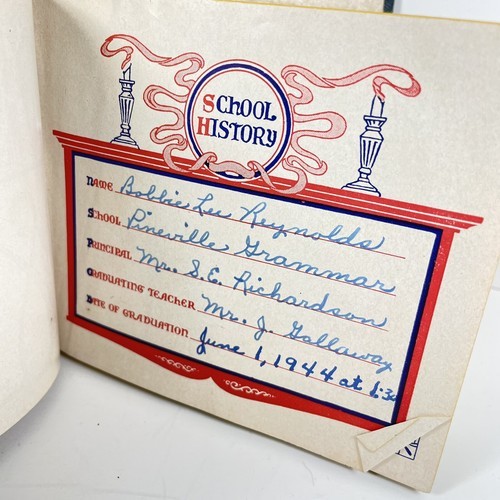 SCHOOL
HISTORY
NAME Bobbie Lee Reynolds
SCHOOL Pineville Grammar
PRINCIPAL Mr. S.E. Richardson
GRADUATING TEACHER Mr. J. Gallaway
DATE OF GRADUATION June 1, 1944 at 1:30